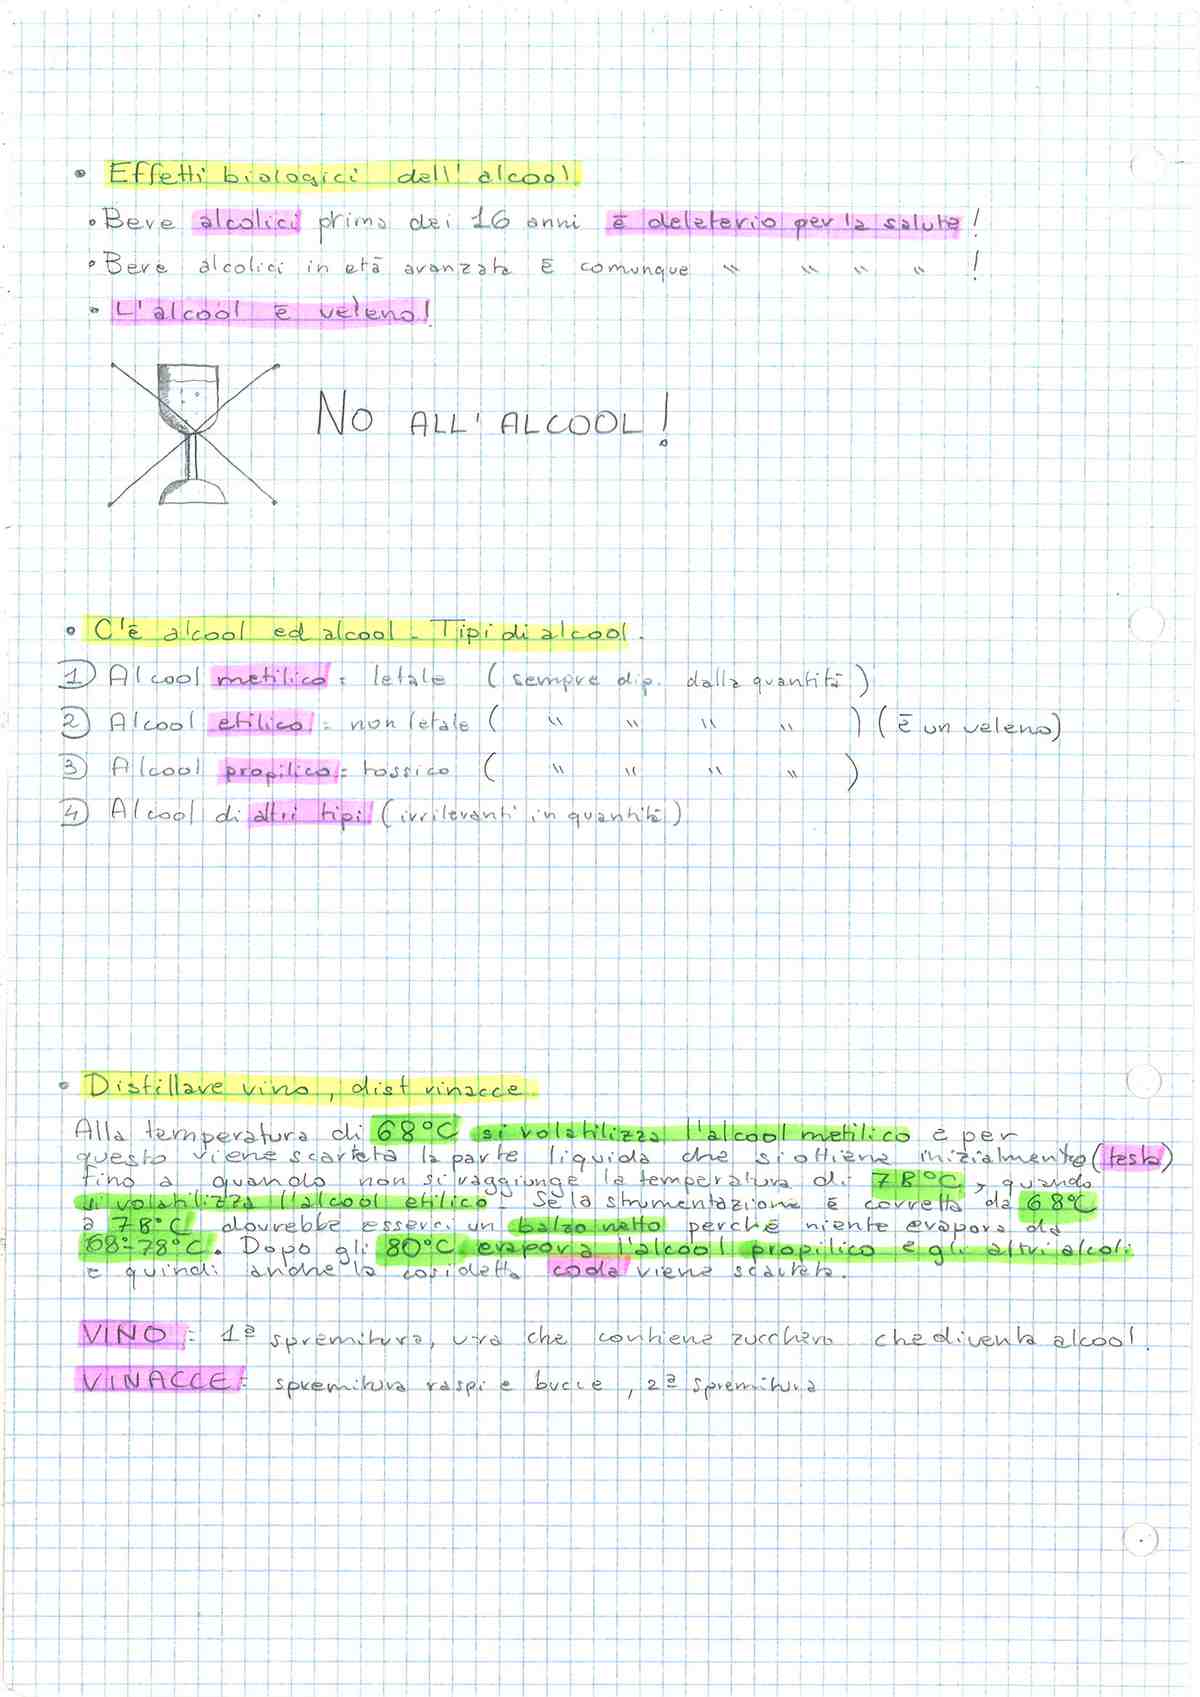 • Effetti biologici dell'alcool
• Bere alcolici prima dei 16 anni è deleterio per la salute!
• Bere alcolici in età avanzata è comunque " " " " !
• L'alcool è veleno!
NO ALL'ALCOOL!
• C'è alcool ed alcool - Tipi di alcool.
1) Alcool metilico = letale (sempre dip. dalla quantità)
2) Alcool etilico = non letale ( " " " " ) (è un veleno)
3) Alcool propilico = tossico ( " " " " )
4) Alcool di altri tipi (irrilevanti in quantità)
• Distillare vino, dist vinacce.
Alla temperatura di 68°C si volatilizza l'alcool metilico e per
questo viene scartata la parte liquida che si ottiene inizialmente (testa)
fino a quando non si raggiunge la temperatura di 78°C, quando
si volatilizza l'alcool etilico. Se la strumentazione è corretta da 68°C
a 78°C dovrebbe esserci un balzo netto perché niente evapora da
68°-78°C. Dopo gli 80°C evapora l'alcool propilico e gli altri alcoli
e quindi anche la cosidetta coda viene scartata.
VINO = 1ª spremitura, uva che contiene zucchero che diventa alcool.
VINACCE = spremitura raspi e bucce, 2ª spremitura